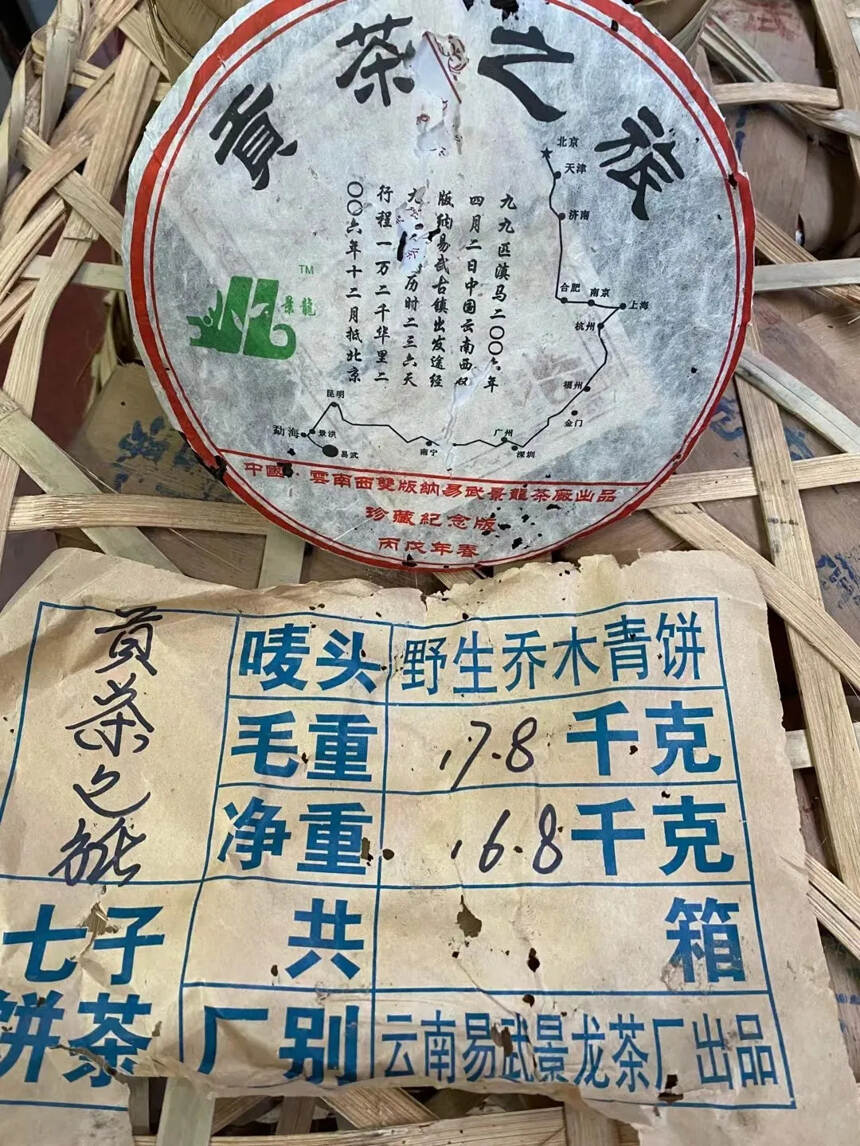 貢茶之旅
九九匹滇马二〇〇六年
四月二日中国云南西双
版纳易武古镇出发途经
九 历时二三六天
行程一万二千华里二
〇〇六年十二月抵北京
TM
景龍
北京
天津
济南
合肥
南京
上海
杭州
福州
金门
广州
深圳
南宁
昆明
勐海
景洪
易武
中國·雲南西雙版納易武景龍茶廠出品
珍藏紀念版
丙戌年春
贡茶之旅
唛头 野生乔木青饼
毛重 17.8千克
净重 16.8千克
七子饼茶
共 箱
厂别 云南易武景龙茶厂出品